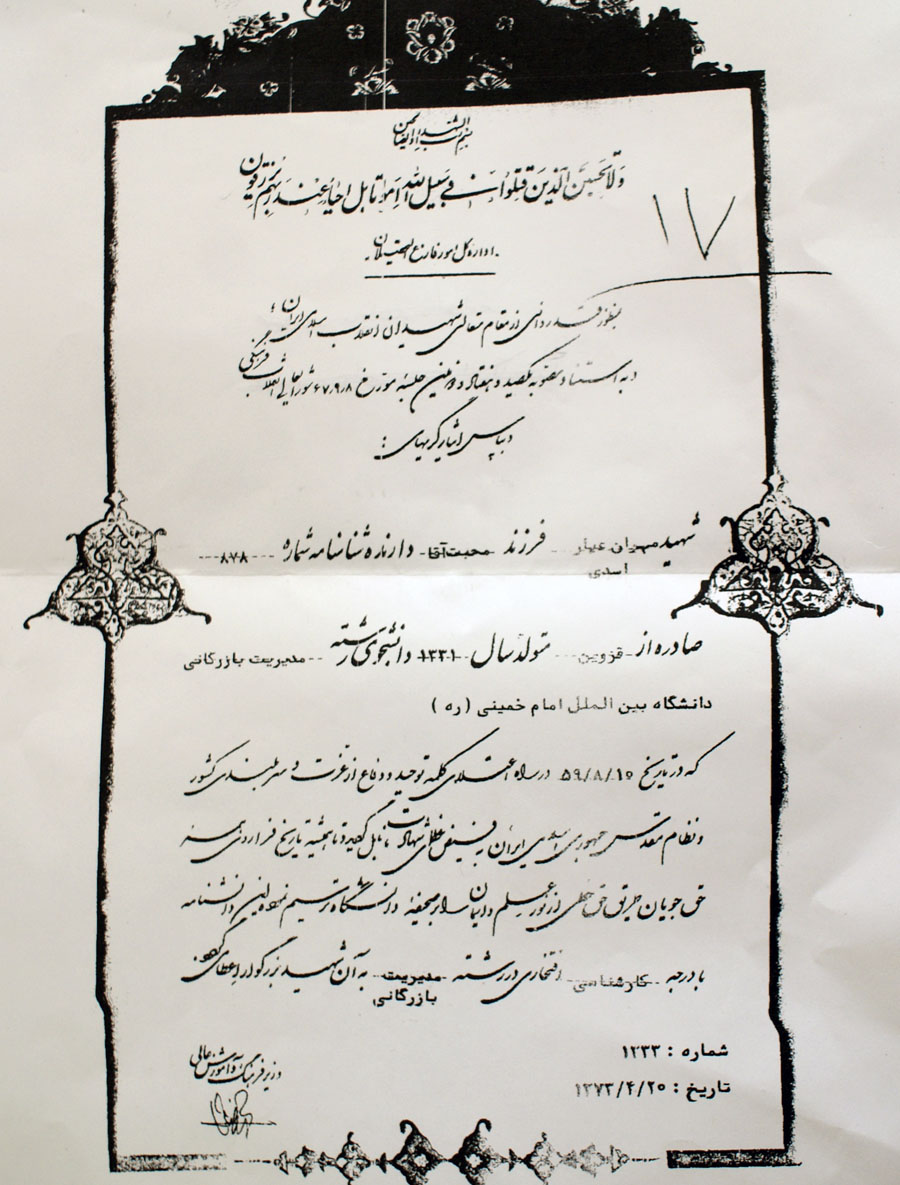 بسم رب الشهداء والصالحین
وَلا تَحْسَبَنَّ الَّذینَ قُتِلُوا فی سَبیلِ اللهِ اَمْواتا بَل اَحیاءٌ عِندَ رَبِّهِم یُرزَقون
۱۷
اداره کل امور فارغ التحصیلان
بمنظور قدردانی از مقام متعالی شهیدان انقلاب اسلامی ایران
و به استناد مصوبه یکصد و هفتاد و دومین جلسه مورخ ۶۷/۹/۸ شورایعالی انقلاب فرهنگی
و بپاس ایثارگریهای :
شهید مهران عیار اسدی فرزند محبت‌آقا دارنده شناسنامه شماره ۸۷۸
صادره از قزوین متولد سال ۱۳۳۱ دانشجوی رشته مدیریت بازرگانی
دانشگاه بین المللی امام خمینی (ره )
که در تاریخ ۵۹/۸/۱۰ در راه اعتلای کلمه توحید و دفاع از عزت و سربلندی کشور
و نظام مقدس جمهوری اسلامی ایران به فیض عظمای شهادت نایل گردیده تا همیشه تاریخ فرا روی همه
حق جویان طریق حق خطی از نور علم و ایمان را بر صحیفه دانشگاه ترسیم نموده این دانشنامه
با درجه کارشناسی افتخاری در رشته مدیریت بازرگانی به آن شهید بزرگوار اعطا می گردد
شماره : ۱۲۳۳
تاریخ : ۱۳۷۳/۴/۲۰
وزیر فرهنگ و آموزش عالی